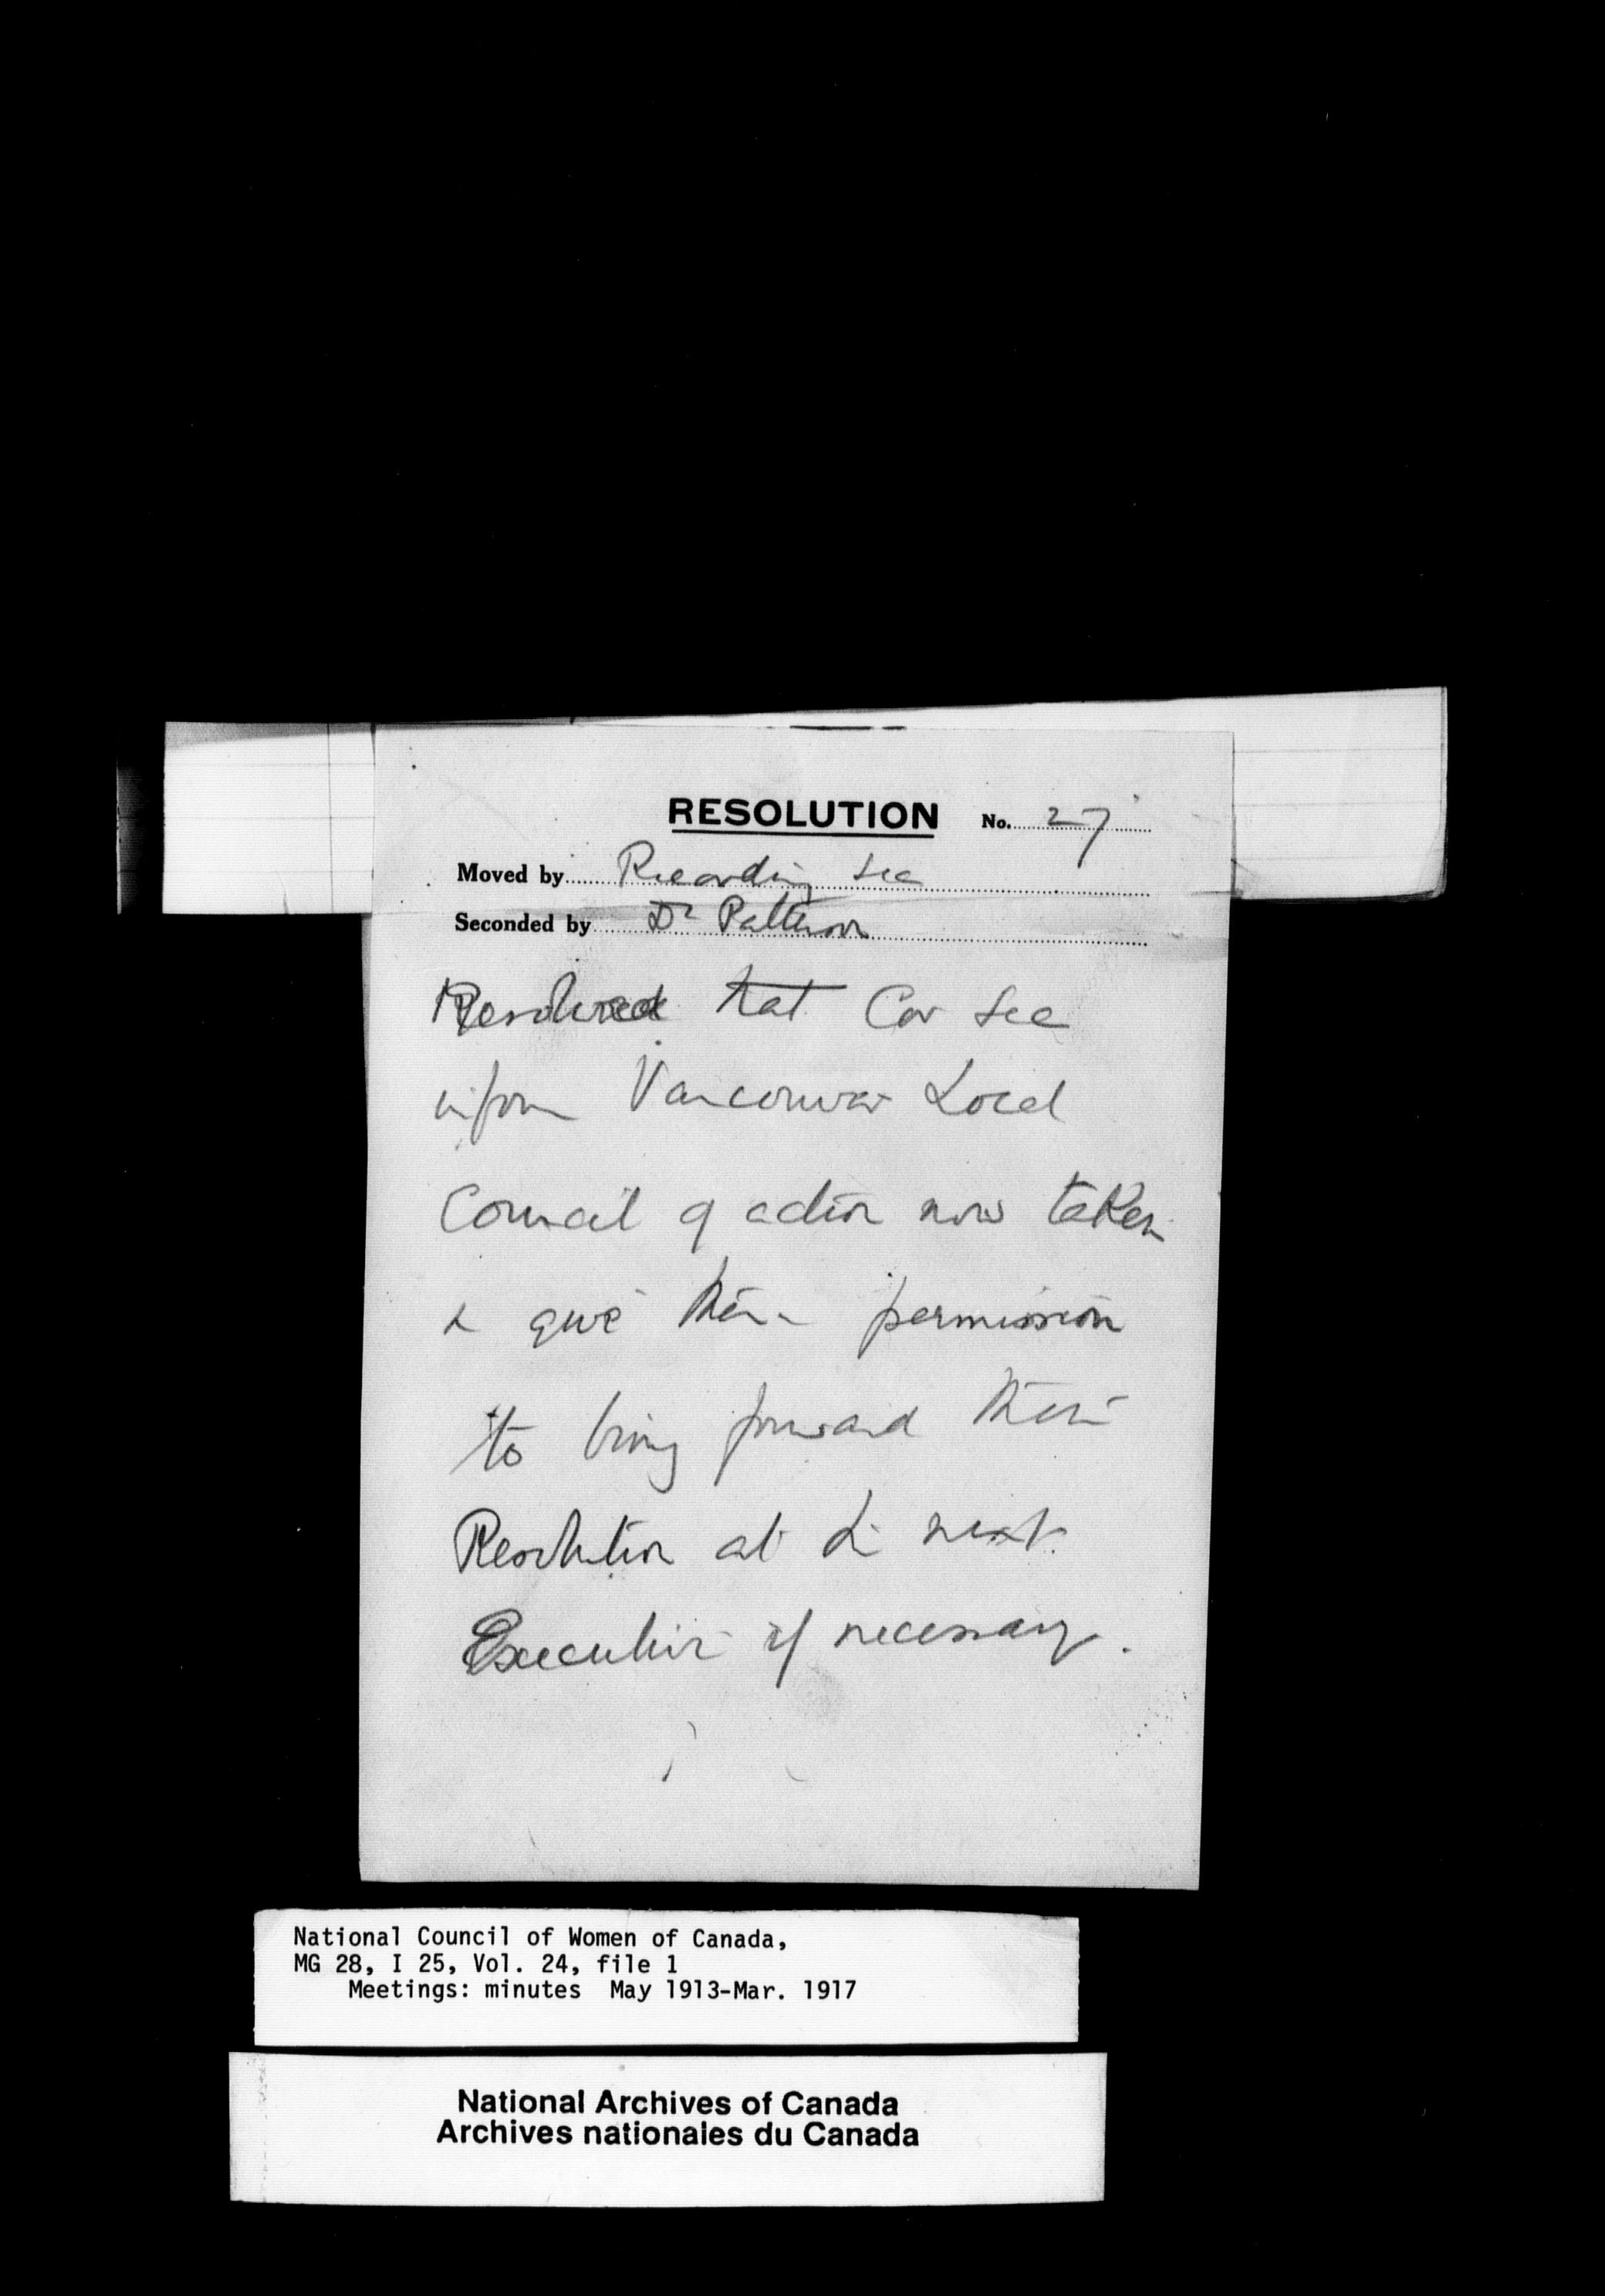 RESOLUTION No. 27
Moved by Recording Sec
Seconded by Dr Patterson
Resolved that Cor Sec
inform Vancouver Local
Council of action now taken
& give them permission
to bring forward their
Resolution at the next
Executive if necessary.
National Council of Women of Canada,
MG 28, I 25, Vol. 24, file 1
Meetings: minutes May 1913-Mar. 1917
National Archives of Canada
Archives nationales du Canada